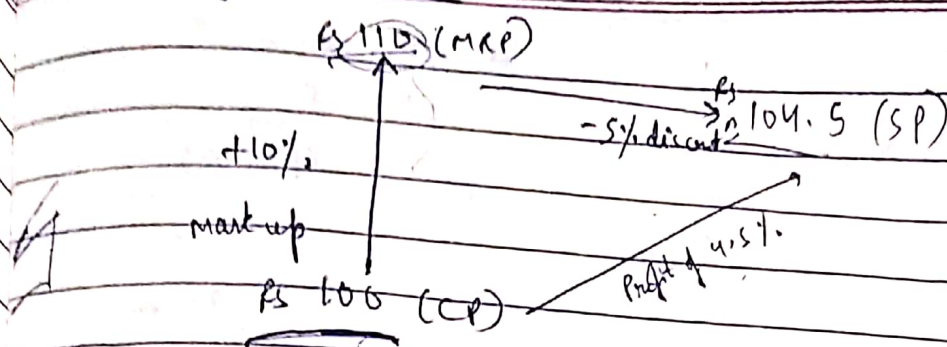 Rs 110 (MRP)
Rs 104.5 (SP)
-5% discount
+10%
mark up
Profit of 4.5%
Rs 100 (CP)